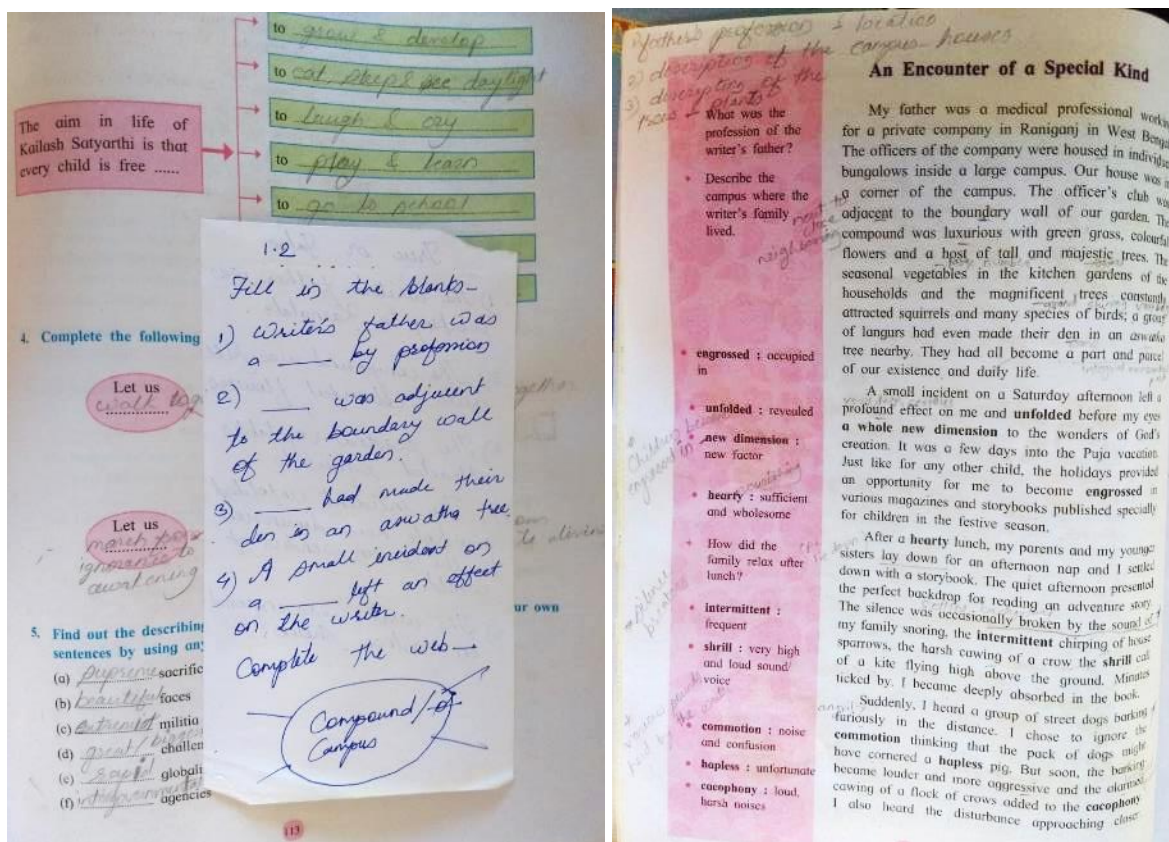 to grow & develop
to eat, sleep & see daylight
to laugh & cry
to play & learn
to go to school
The aim in life of
Kailash Satyarthi is that
every child is free ......
4. Complete the following
Let us
walk
Let us
march
ignorance to
awakening
5. Find out the describing
sentences by using any
ur own
(a) supreme sacrific
(b) beautiful faces
(c) extremist militia
(d) great / biggest challen
(e) social globali
(f) intergovernmental agencies
113
1.2
Fill in the blanks—
1) Writer's father was
a ____ by profession
2) ____ was adjacent
to the boundary wall
of the garden.
3) ____ had made their
den in an aswatha tree.
4) A small incident on
a ____ left an effect
on the writer.
Complete the web—
Compound/
Campus
1) father's profession & location
2) description of the campus - houses
3) description of the
trees & plants
What was the
profession of the
writer's father?
• Describe the
campus where the
writer's family
lived.
next to
neighbouring
• engrossed : occupied
in
• unfolded : revealed
• new dimension :
new factor
• hearty : sufficient
and wholesome
• How did the
family relax after
lunch?
• intermittent :
frequent
• shrill : very high
and loud sound/
voice
• commotion : noise
and confusion
• hapless : unfortunate
• cacophony : loud,
harsh noises
An Encounter of a Special Kind
My father was a medical professional workin
for a private company in Raniganj in West Benga
The officers of the company were housed in individu
bungalows inside a large campus. Our house was in
a corner of the campus. The officer's club was
adjacent to the boundary wall of our garden. The
compound was luxurious with green grass, colourful
flowers and a host of tall and majestic trees. The
seasonal vegetables in the kitchen gardens of the
households and the magnificent trees constantly
attracted squirrels and many species of birds; a group
of langurs had even made their den in an aswatha
tree nearby. They had all become a part and parcel
of our existence and daily life.
A small incident on a Saturday afternoon left a
profound effect on me and unfolded before my eyes
a whole new dimension to the wonders of God's
creation. It was a few days into the Puja vacation.
Just like for any other child, the holidays provided
an opportunity for me to become engrossed in
various magazines and storybooks published specially
for children in the festive season.
After a hearty lunch, my parents and my younger
sisters lay down for an afternoon nap and I settled
down with a storybook. The quiet afternoon presented
the perfect backdrop for reading an adventure story.
The silence was occasionally broken by the sound of
my family snoring, the intermittent chirping of house
sparrows, the harsh cawing of a crow the shrill call
of a kite flying high above the ground. Minutes
ticked by. I became deeply absorbed in the book.
Suddenly, I heard a group of street dogs barking
furiously in the distance. I chose to ignore the
commotion thinking that the pack of dogs might
have cornered a hapless pig. But soon, the barking
became louder and more aggressive and the alarmed
cawing of a flock of crows added to the cacophony
I also heard the disturbance approaching close